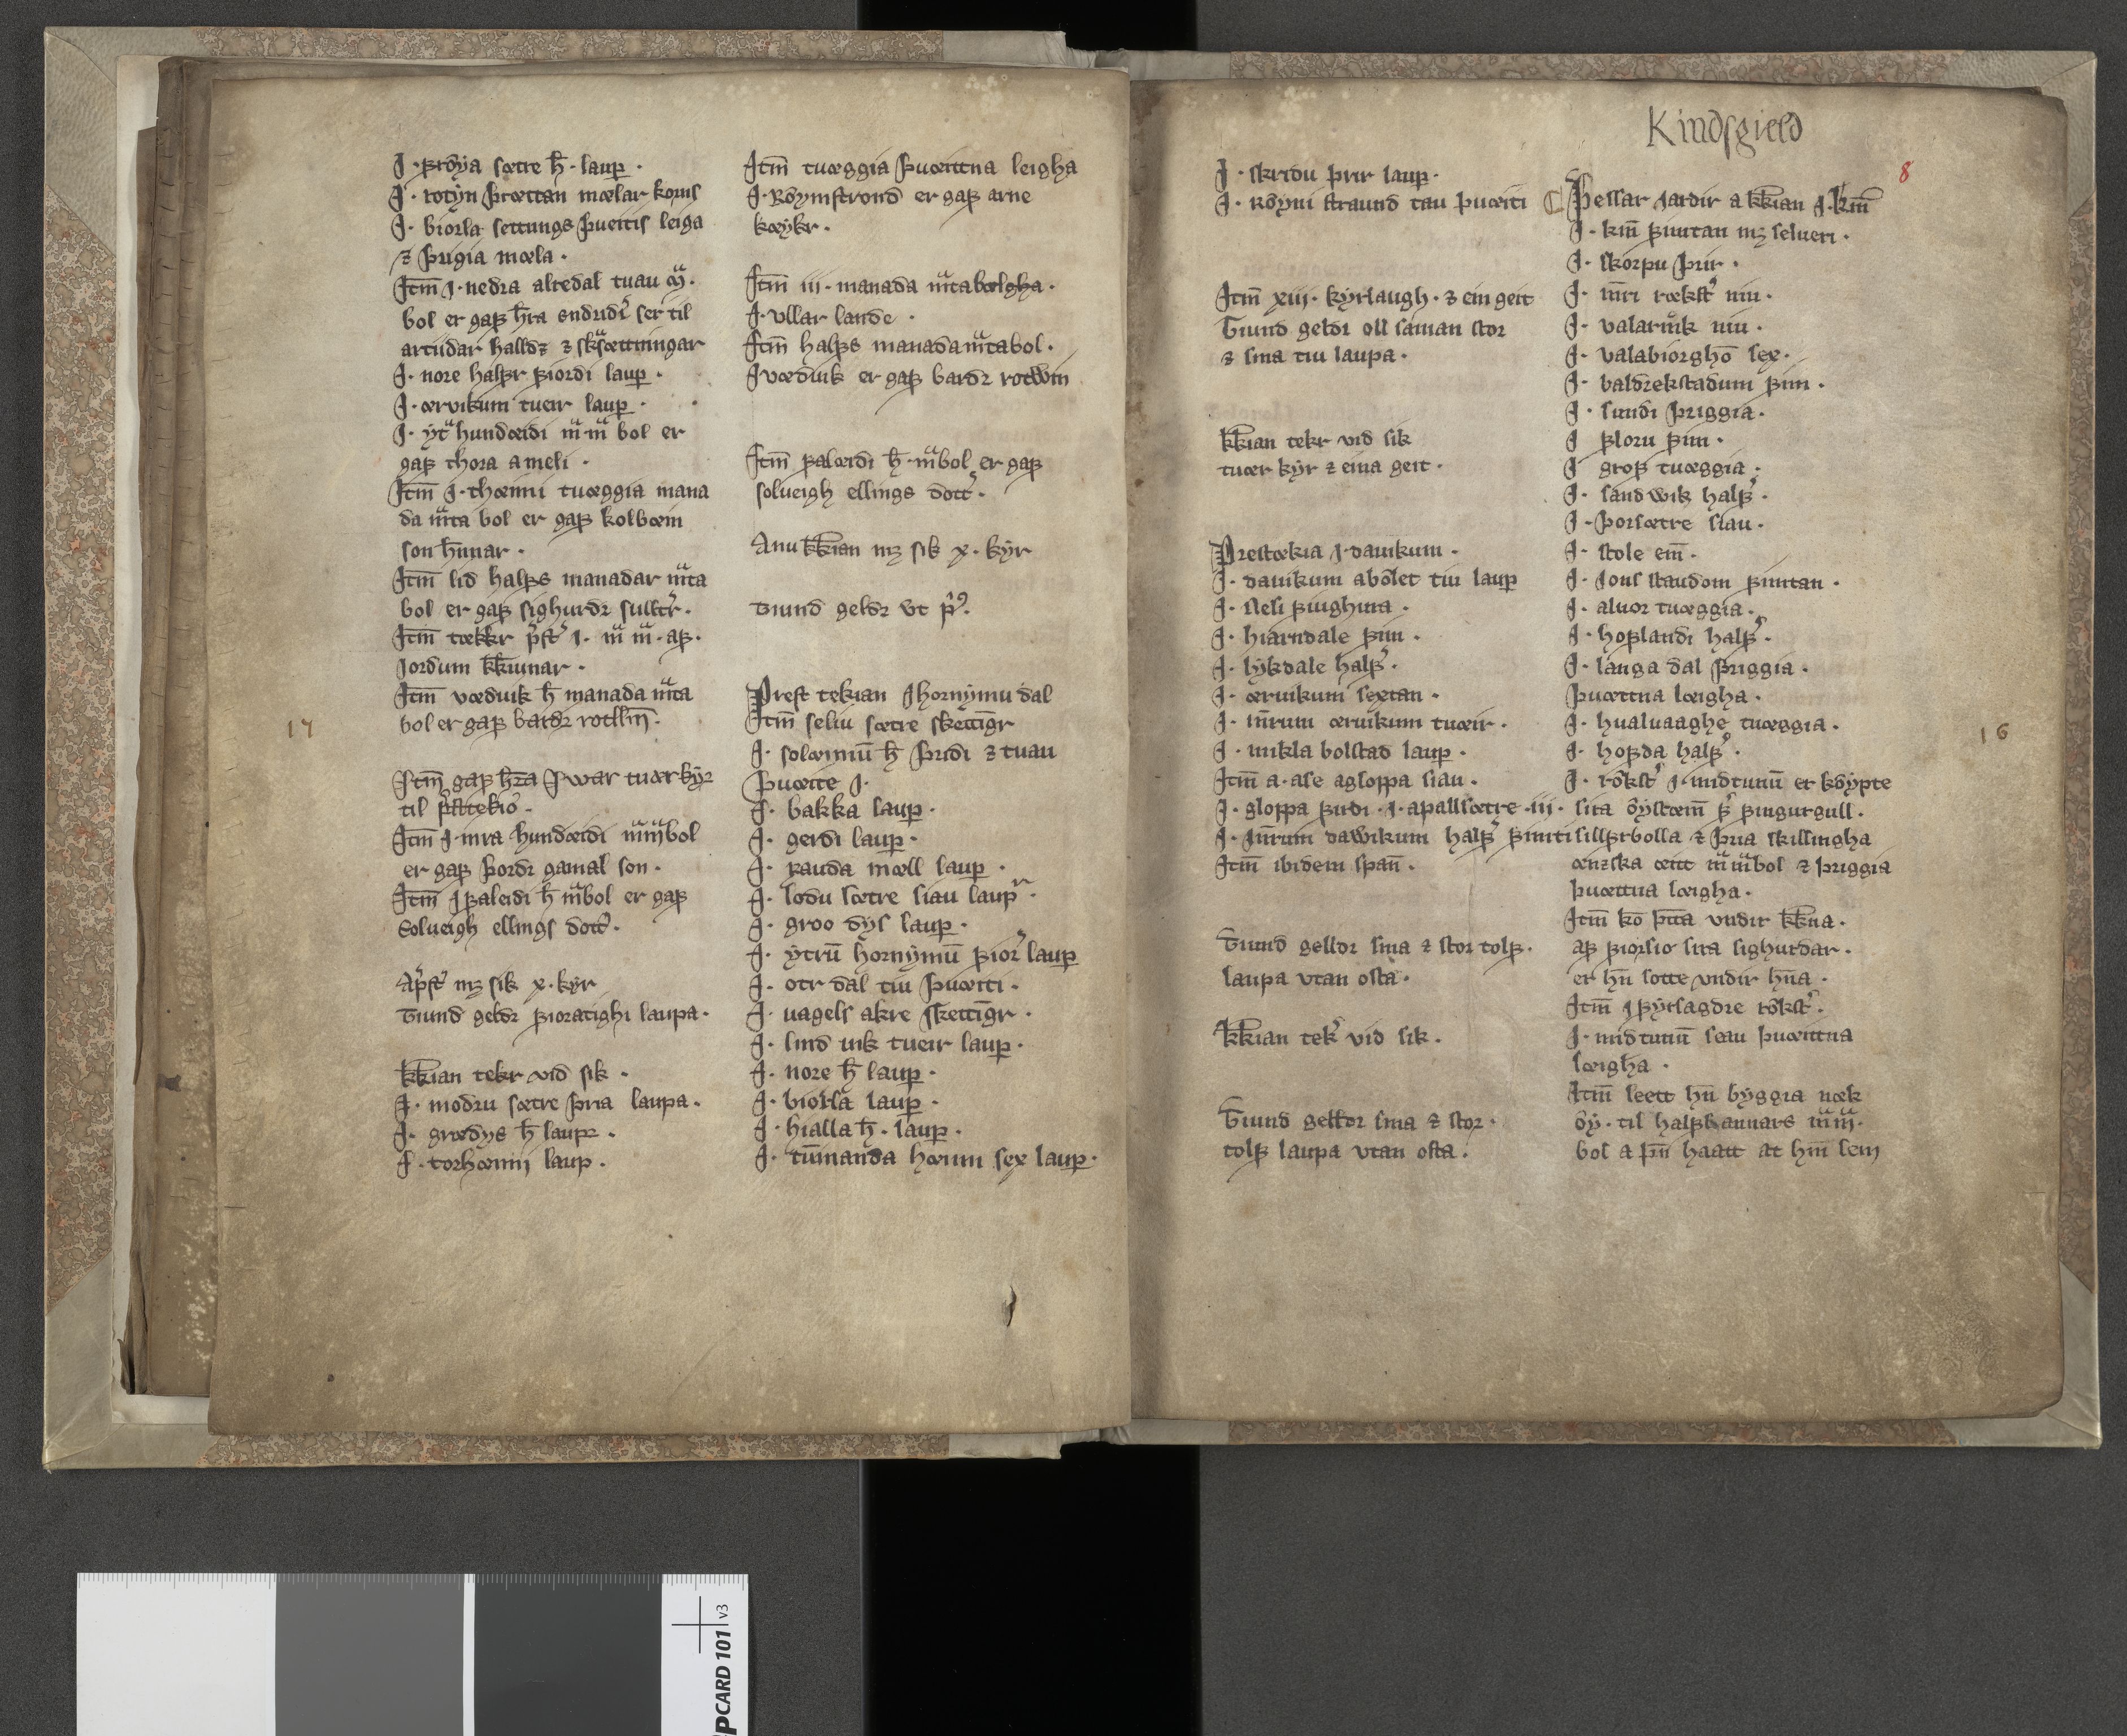 J · frøya sætre h̄ · laup ·
J · rotyn þrættan mælar korns
J · biorla settungs þueitis leiga
⁊ þrigia mæla ·
Jtm̄ J · nedra altedal tuau m ·
bol er gaf h̄ra endridi ser til
artiidar halldz ⁊ sksættningar
J · nore halfr fiordi laup ·
J · ærvikum tueir laup ·
J · ytra hundæidi m · m bol er
gaf thora a meli ·
Jtm̄ J · thæimi tuæggia mana
da mta bol er gaf kolbæin
son h̄nnar ·
Jtm̄ lid halfs manadar mta
bol er gaf sighurdr
Jtm̄ tækkr pʼstʼ J · m m · af ·
Jordum kk̄iunar ·
Jtm̄ væduik h̄ manada mta
bol er gaf bardr rotllin̄ ·
17
Jtm̄ gaf h̄ra Jwar tuær kyr
til
Jtm̄ J · inra hundæidi m m bol
er gaf þordr gamal son ·
Jtm̄ J faleidi h̄ m bol er gaf
Solueigh ellings dottʼ ·
A pʼstʼ mz sik x · kyr
Tiund geldr fioratighi laupa ·
kk̄ian tekr vid sik ·
J · modru sætre þria laupa ·
J · grædys h̄ laupr ·
J · torhæimi laup ·
Jtm̄ tuæggia þuæittna leigha
J · Røymstrond er gaf arne
kæykr ·
Jtm̄ iii · manada mtabolgha ·
J · vllar lande ·
Jtm̄ halfs manada mtabol ·
J væduik er gaf bardr rotwin
Jtm̄ falæidi h̄ · m bol er gaf
solueigh ellings dottʼ ·
A nu kk̄ian mz sik x · kyr
Tiund geldr vt
Prest tekian J hornymu dal
Jtm̄ seliu sætre skettīgr
J · solæimū h̄ þridi ⁊ tuau
þuæite J ·
J · bakka laup ·
J · gerdi laup ·
J · rauda mæll laup ·
J · lodu sætre siau laupr ·
J · groo dys laup ·
J · ytrū hornymū fiorʼ laup
J · otr dal tiu þuæiti ·
J · nagels akre skettīgr ·
J · lind uik tueir laup ·
J · nore h̄ laup ·
J · biorla laup ·
J · hialla h̄ · laup ·
J · tūmanda hæimi sex laup ·
Kindsgield
8
J · skridu þrir laup ·
J · Røymi straund tau þuæiti
Jtm̄ xiii · kyrlaugh · ⁊ ein geit
Tiund geldr oll saman stor
⁊ sma tiu laupa ·
kk̄ian tekr vid sik
tuær kyr ⁊ eina geit ·
Prestækia J · dauikum ·
J · dauikum abølet tiu laup
J · nesi fiughura ·
J · hiarndale fim ·
J · lykdale halfʼ ·
J · æruikum sextan ·
J · in̄rum æruikum tuæir ·
J · mikla bolstad laup ·
Jtm̄ a · ase agloppa siau ·
J · gloppa fridi · J · apallsætre · iii ·
J · Jn̄rum dawikum halfʼ fimti
Jtm̄ ibidem span̄ ·
Tiund gelldr sma ⁊ stor tolf ·
laupa vtan osta ·
kk̄ian tekʼ vid sik ·
Tiund gelldr sma ⁊ stor ·
tolf laupa vtan osta ·
Þessar Jardir a kk̄ian J · kin̄
J · kin̄ fimtan mz selueri ·
J · skorpu þrir ·
J · in̄ri rækstʼ niu ·
J · valaruik niu ·
J · valabiorghō sex ·
J · baldrekstadum fim ·
J · sundi þriggia ·
J floru fim ·
J grof tuæggia ·
J · sandwik halfʼ ·
J · þorsætre siau ·
J · stole ein̄ ·
J · Jons staudom fimtan ·
J · aluor tuæggia ·
J · hoflandi halfʼ ·
J · langa dal þriggia ·
þuættna læigha ·
J · hualuaaghe tuæggia ·
16
J · hofda halfʼ ·
J · røkstʼ J · midtunū er køypte
sira øystæin̄ fʼ fingurgull ·
sillfrbolla ⁊ þria skillingha
ænzska æitt m m bol ⁊ þriggia
þuættna læigha ·
Jtm̄ kō þtta vndir kk̄na ·
af fiorsio sira sighurdar ·
er hn̄ sotte vndir hn̄a ·
Jtm̄ J fyrsagdre røkstʼ ·
J · midtunū seau þuættna
læigha ·
Jtm̄ leett hn̄ byggia uæk
øy · til halfs annars m m ·
bol a þn̄ haatt at hin̄ sem